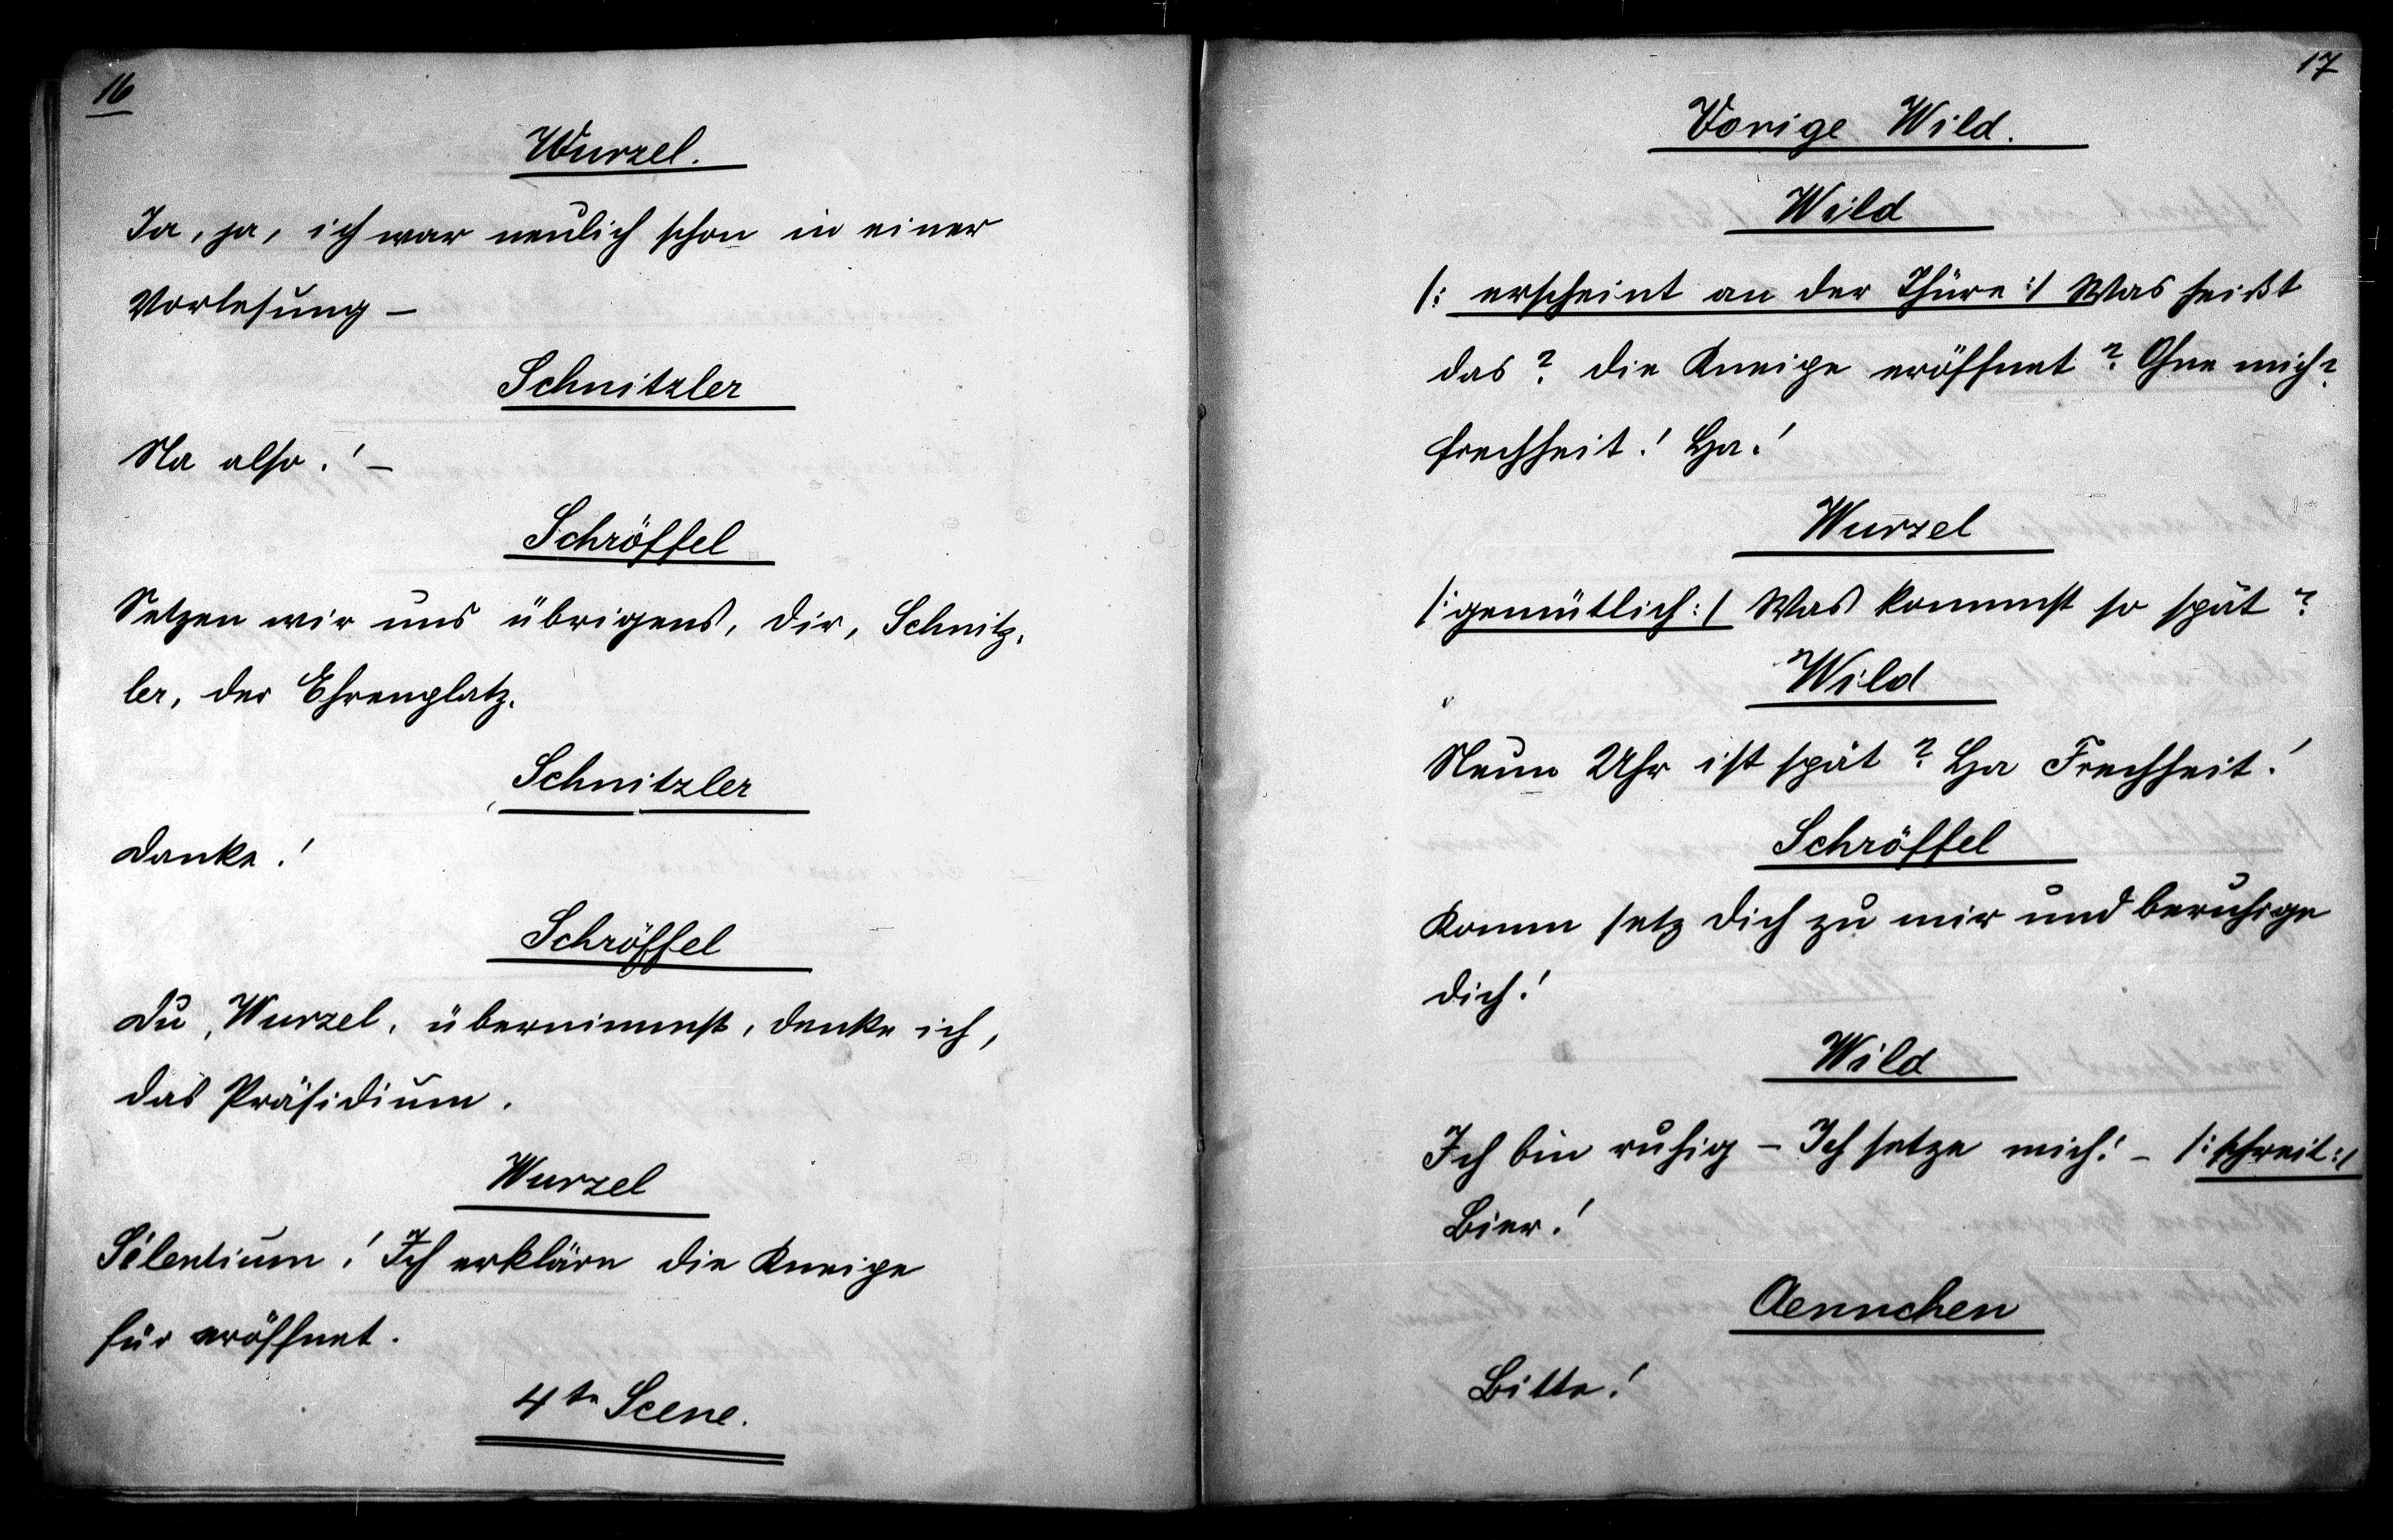 16
Wurzel.
Ja, ja, ich war neulich schon in einer
Vorlesung –
Schnitzler
Na also! –
Schröffel
Setzen wir uns übrigens, dir, Schnitz-
ler, der Ehrenplatz.
Schnitzler
Danke!
Schröffel
Du, Wurzel, übernimmst, denke ich,
das Präsidium.
Wurzel
Silentium! Ich erkläre die Kneipe
für eröffnet.
4te Scene.
17
Vorige Wild.
Wild
/: erscheint an der Thüre :/ Was heißt
das? die Kneipe eröffnet? Ohne mich?
Frechheit! Ha!
Wurzel
/: gemütlich :/ Was kommst so spät?
Wild
Neun Uhr ist spät? Ha Frechheit!
Schröffel
Komm setz dich zu mir und beruhige
dich!
Wild
Ich bin ruhig – Ich setze mich! – /: schreit :/
Bier!
Aennchen
Bitte!